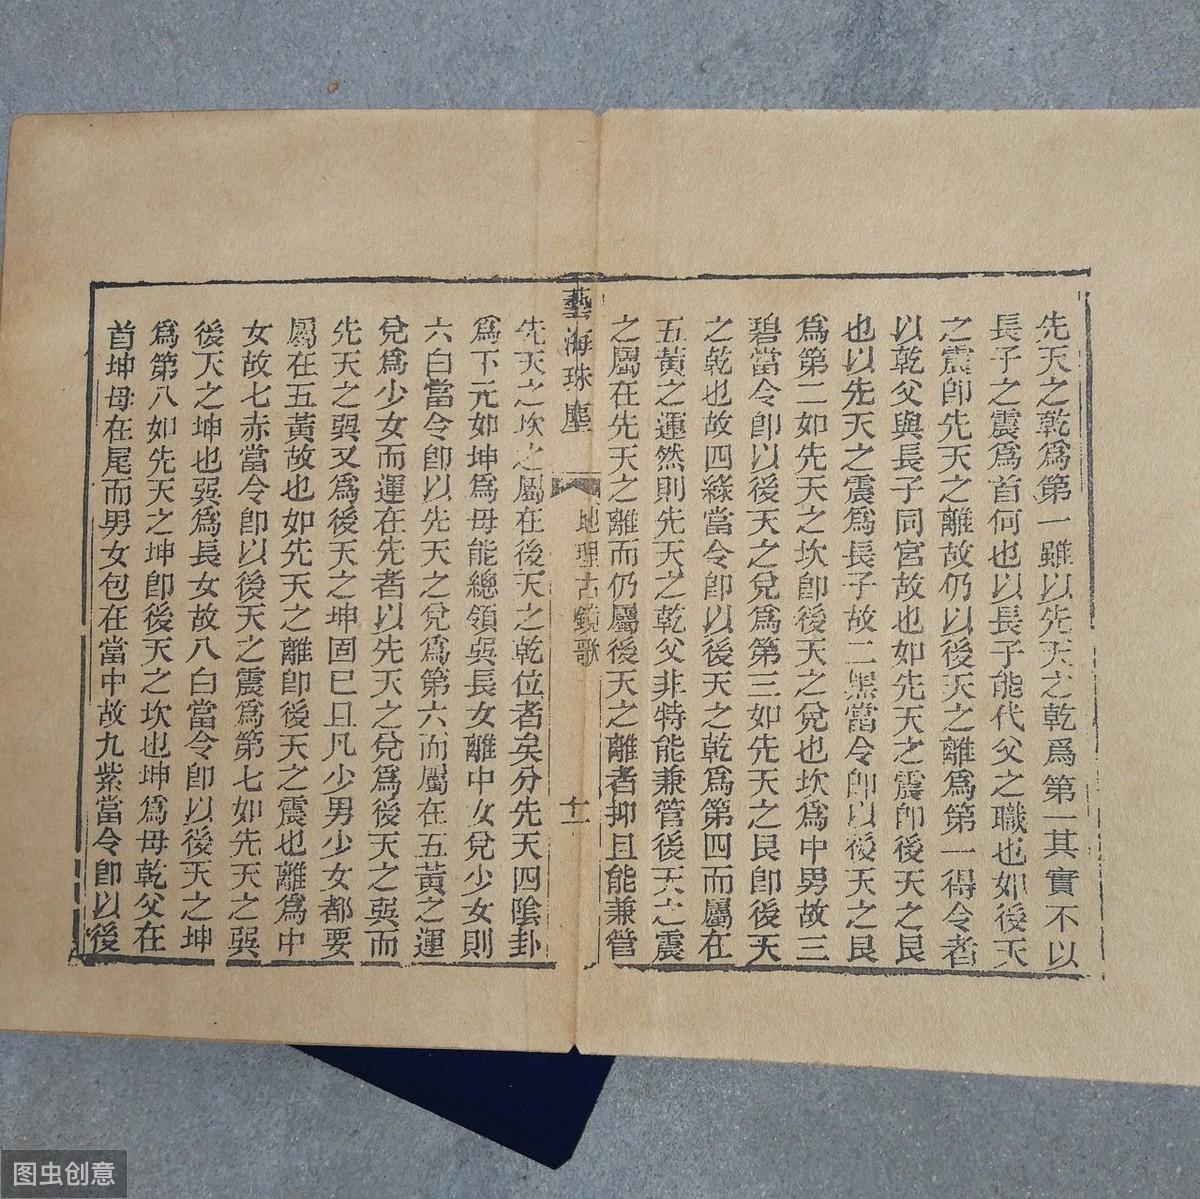 先天之乾爲第一雖以先天之乾爲第一其實不以
長子之震爲首何也以長子能代父之職也如後天
之震卽先天之離故仍以後天之離爲第一得令者
以乾父與長子同宮故也如先天之震卽後天之艮
也以先天之震爲長子故二黑當令卽以後天之艮
爲第二如先天之坎卽後天之兌也坎爲中男故三
碧當令卽以後天之兌爲第三如先天之艮卽後天
之乾也故四綠當令卽以後天之乾爲第四而屬在
五黃之運然則先天之乾父非特能兼管後天之震
之屬在先天之離而仍屬後天之離者抑且能兼管
藝海珠塵
地理古鏡歌
十一
先天之坎之屬在後天之乾位者矣分先天四陰卦
爲下元如坤爲母能總領巽長女離中女兌少女則
六白當令卽以先天之兌爲第六而屬在五黃之運
兌爲少女而運在先者以先天之兌爲後天之巽而
先天之巽又爲後天之坤固已且凡少男少女都要
屬在五黃故也如先天之離卽後天之震也離爲中
女故七赤當令卽以後天之震爲第七如先天之巽
後天之坤也巽爲長女故八白當令卽以後天之坤
爲第八如先天之坤卽後天之坎也坤爲母乾父在
首坤母在尾而男女包在當中故九紫當令卽以後
图虫创意